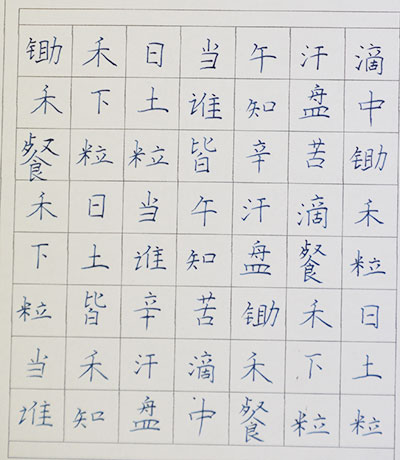 锄禾日当午汗滴
禾下土谁知盘中
餐粒粒皆辛苦锄
禾日当午汗滴禾
下土谁知盘餐粒
粒皆辛苦锄禾日
当禾汗滴禾下土
谁知盘中餐粒粒